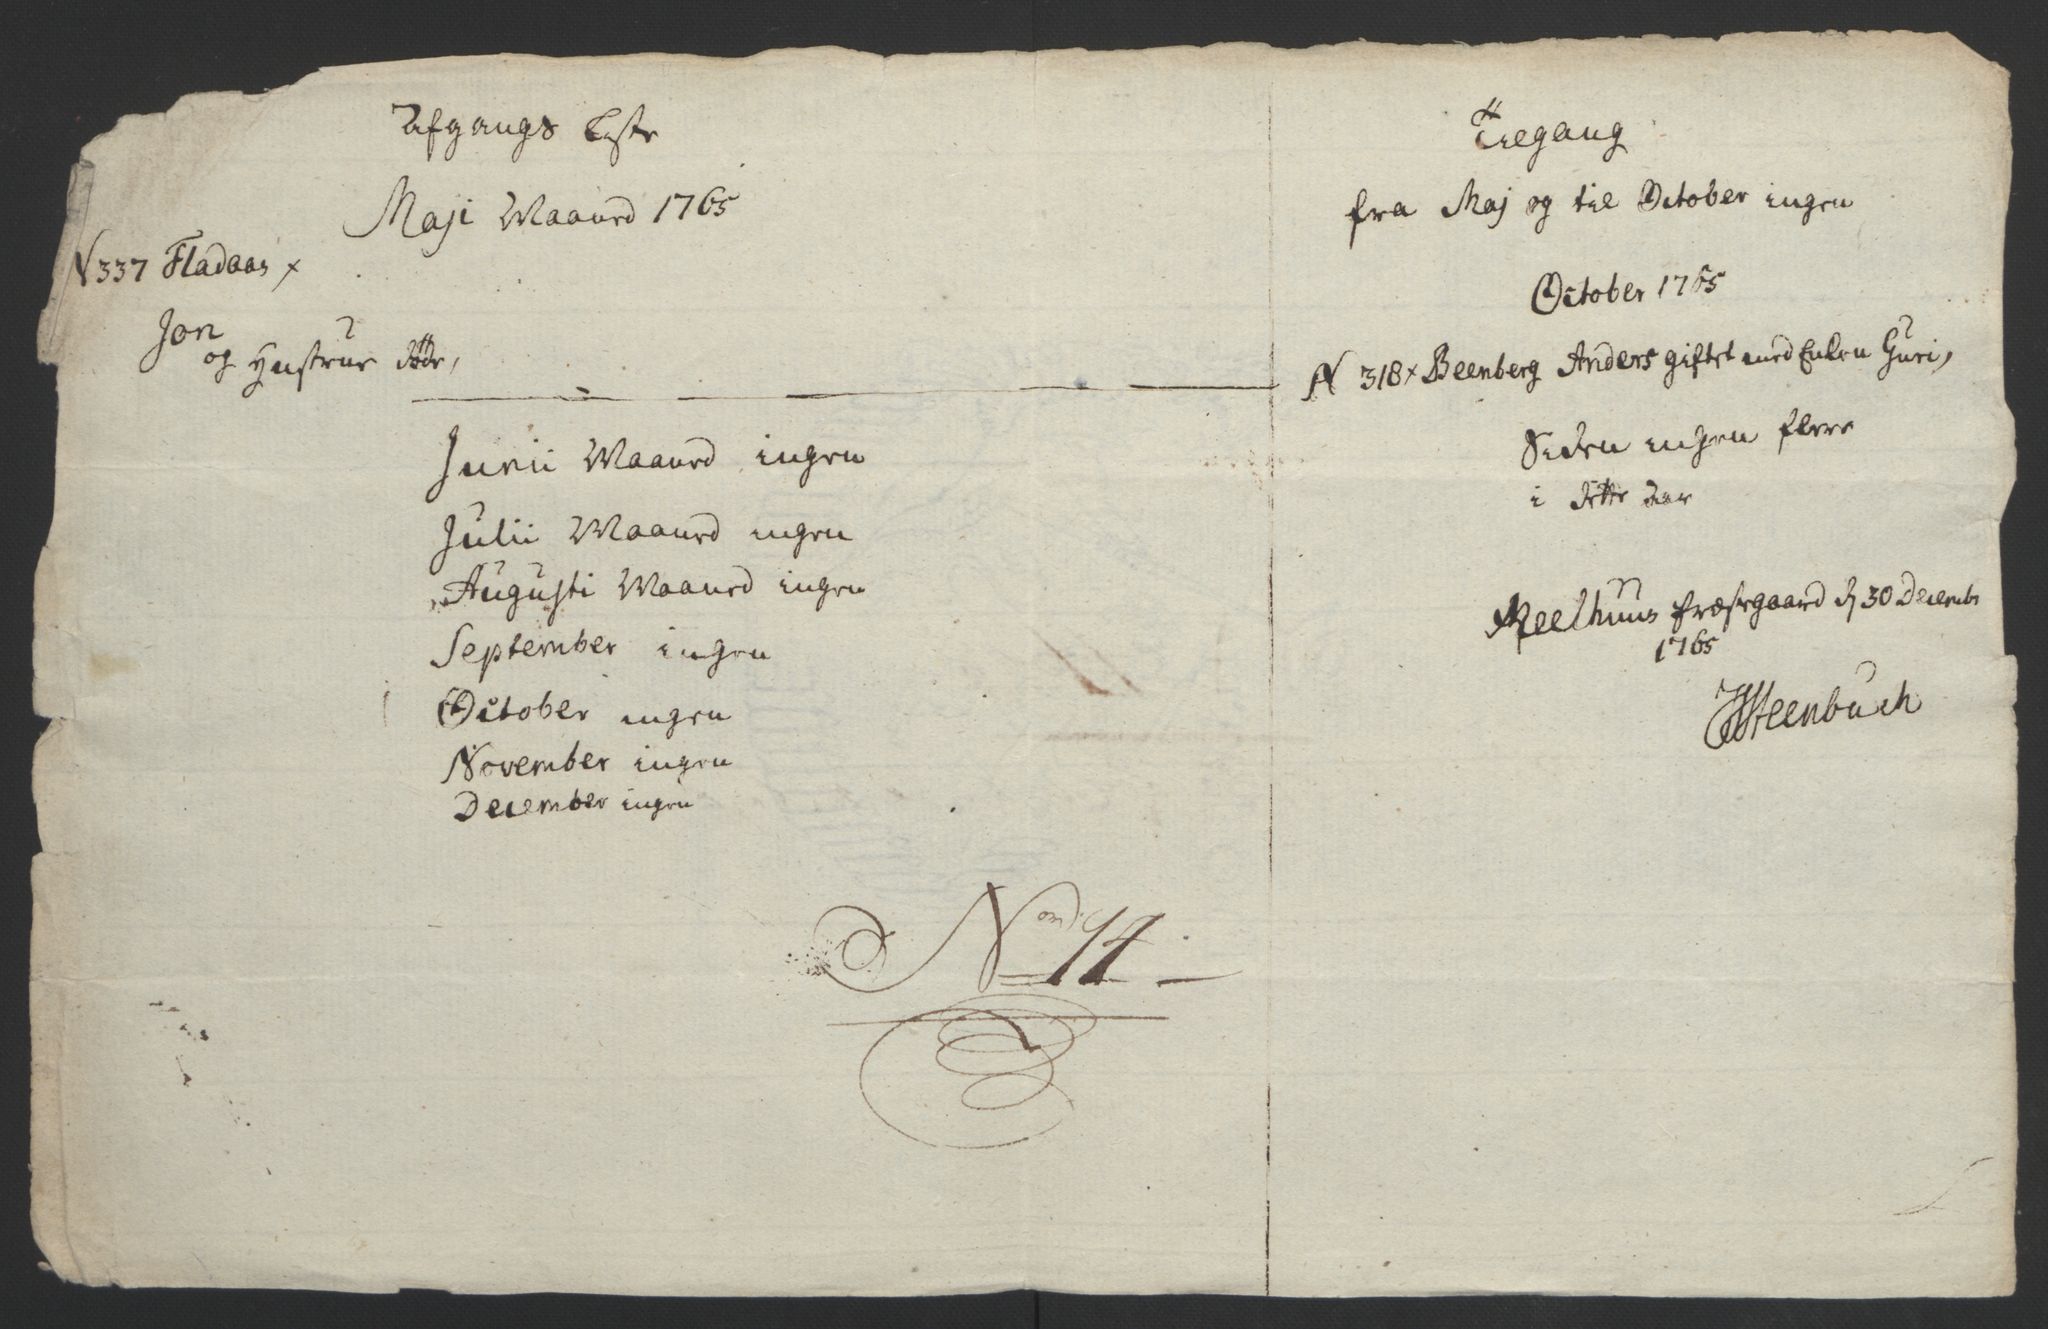 Afgangs Liste
Maji Maaned 1765
N 337 Fladaas x
Jon
og Hustrue døde,
Junii Maaned ingen
Julii Maaned ingen
Augusti Maaned ingen
September ingen
October ingen
November ingen
December ingen
Tilgang
fra Maj og til October ingen
October 1765
N 318 x Beenberg Anders giftet med Enken Guri,
Siden ingen flere
i dette Aar
Meelhuus Præstegaard d 30 Decembr
1765
Steenbuch
No 14.